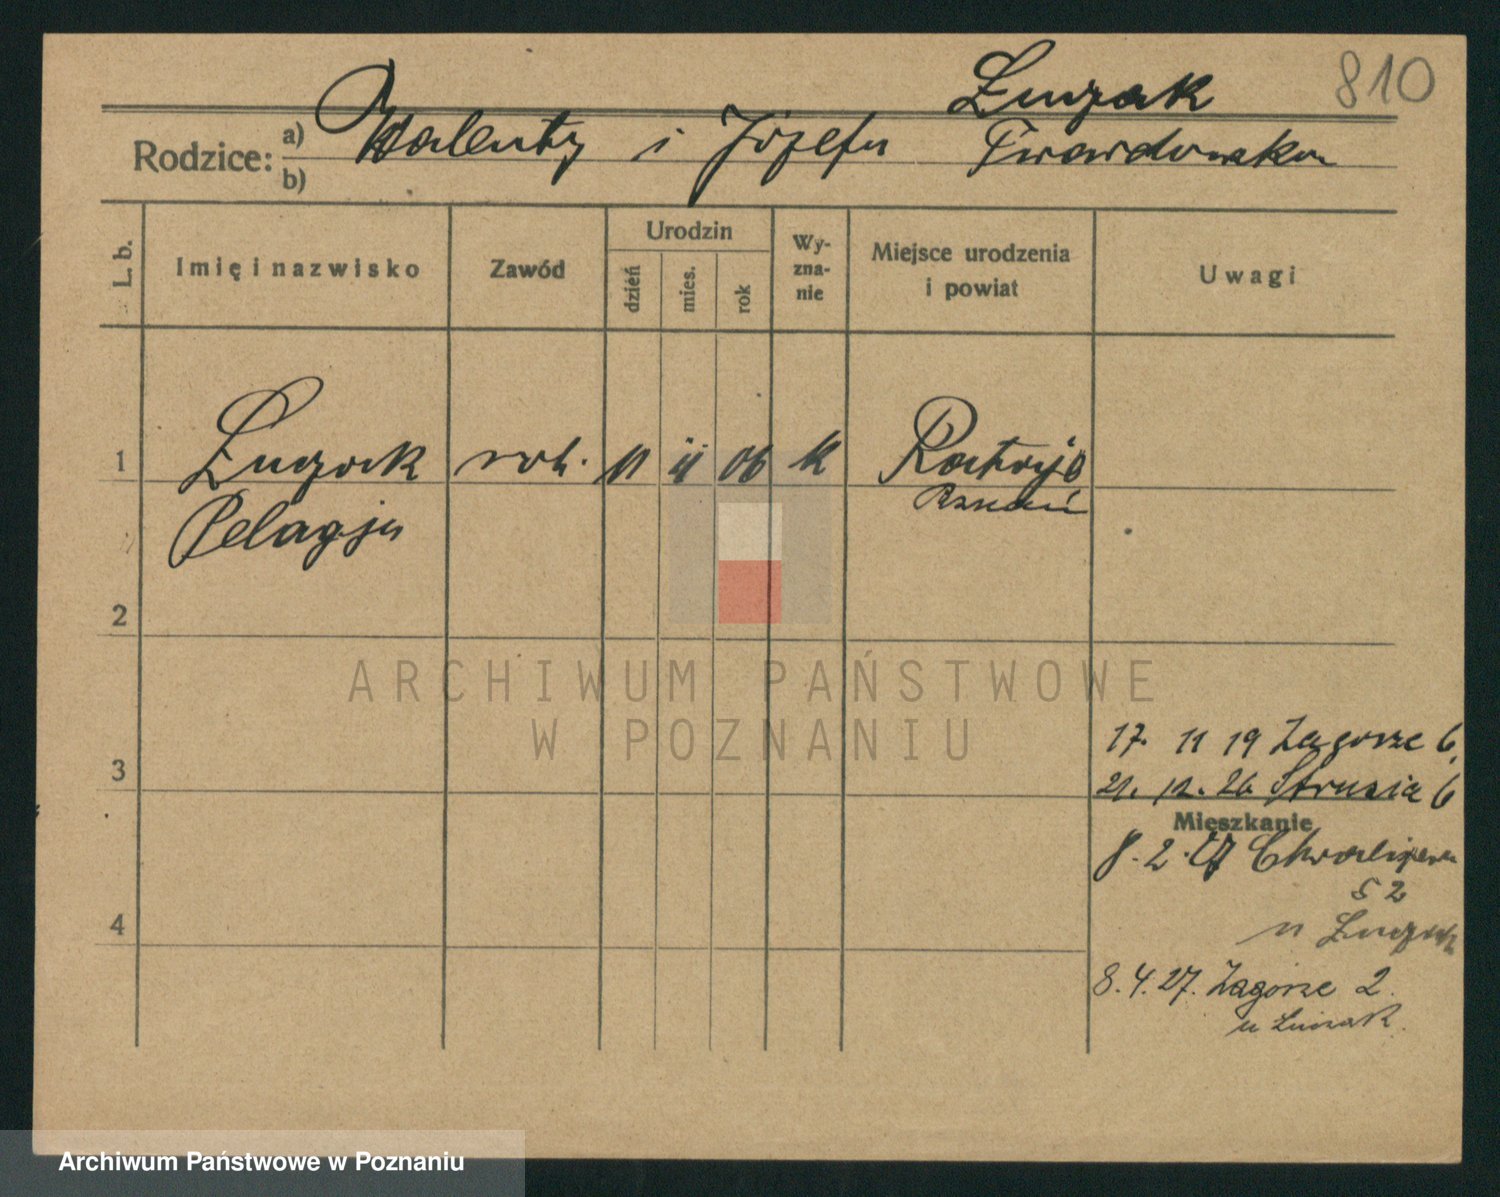 810
Łuczak
Rodzice: a) Walenty i Józefa Twardowska
b)
L. b.
Imię i nazwisko
Zawód
Urodzin
dzień
mies.
rok
Wy-
zna-
nie
Miejsce urodzenia
i powiat
Uwagi
1 Łuczak rob. 11 ii 06 k Rataje
Pelagja Poznań
2
ARCHIWUM PAŃSTWOWE
W POZNANIU
17. 11 19 Zagorze 6
3
21. 12. 26 Strusia 6
Mieszkanie
8. 2. 27
52
4
u Łuczak
8. 4. 27. Zagórze 2.
u Łuczak.
Archiwum Państwowe w Poznaniu